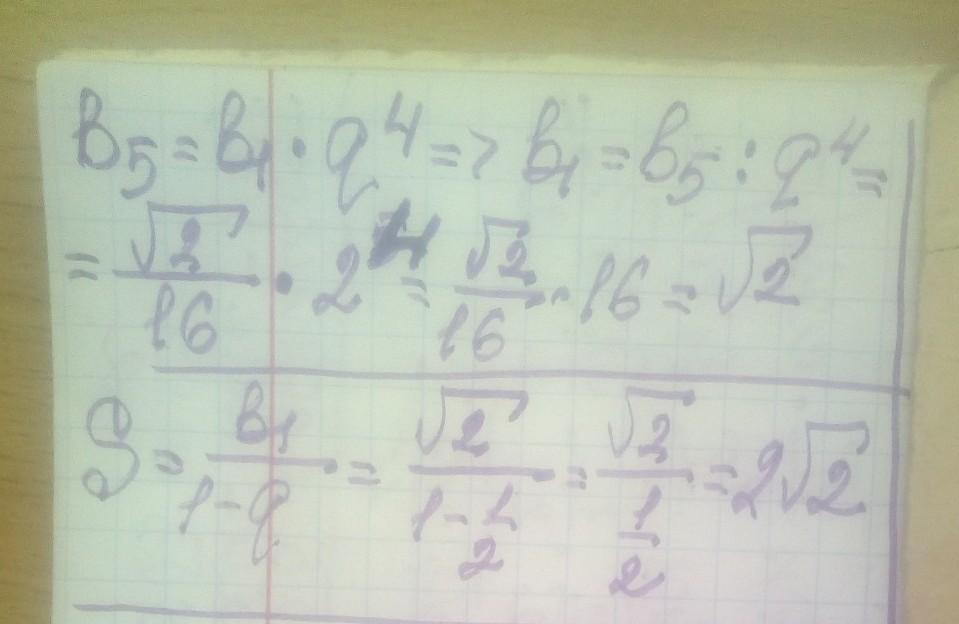 b₅ = b₁ · q⁴ => b₁ = b₅ : q⁴ =
= √2/16 · 2⁴ = √2/16 · 16 = √2
S = b₁/(1-q) = √2/(1-1/2) = √2/(1/2) = 2√2